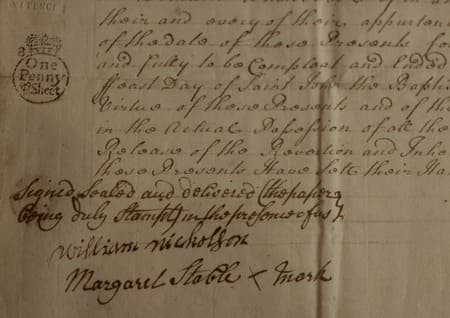 VI PENCE
their and every of their appurten
of the date of these Presents for
8
One
Penny
Sheet
and fully to be Compleat and Ended
ffeast Day of Saint John the Bapti
Virtue of these Presents and of th
in the Actual Possession of all the
Release of the Revertion and Inhe
these Presents Have sett their Han
Signed sealed and delivered (the paper
being duly Stampt) in the presence of us
William Nicholson
Margaret Stable x Mark